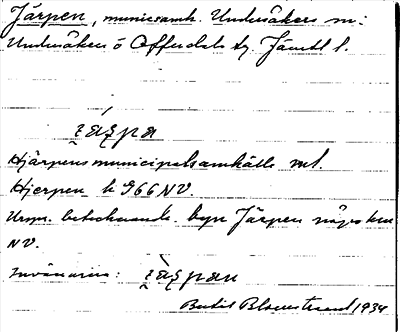 Järpen, municsamh. Undersåkers sn:
Undersåkers o Offerdals tg. Jämtl l.
Hjärpens municipalsamhälle
Hjerpen k G66 NV.
Urspr. byn Järpen
NV.
Invånarna:
Bertil Blomstrand 1934